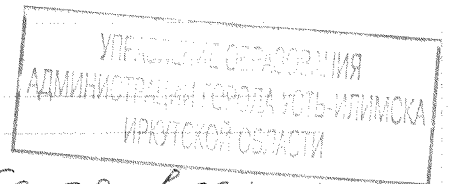 УПРАВЛЕНИЕ ОБРАЗОВАНИЯ
АДМИНИСТРАЦИИ ГОРОДА УСТЬ-ИЛИМСКА
ИРКУТСКОЙ ОБЛАСТИ